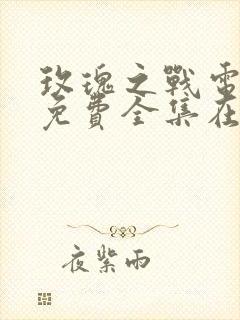 玫瑰之戰電
免費全集在
夜紫雨